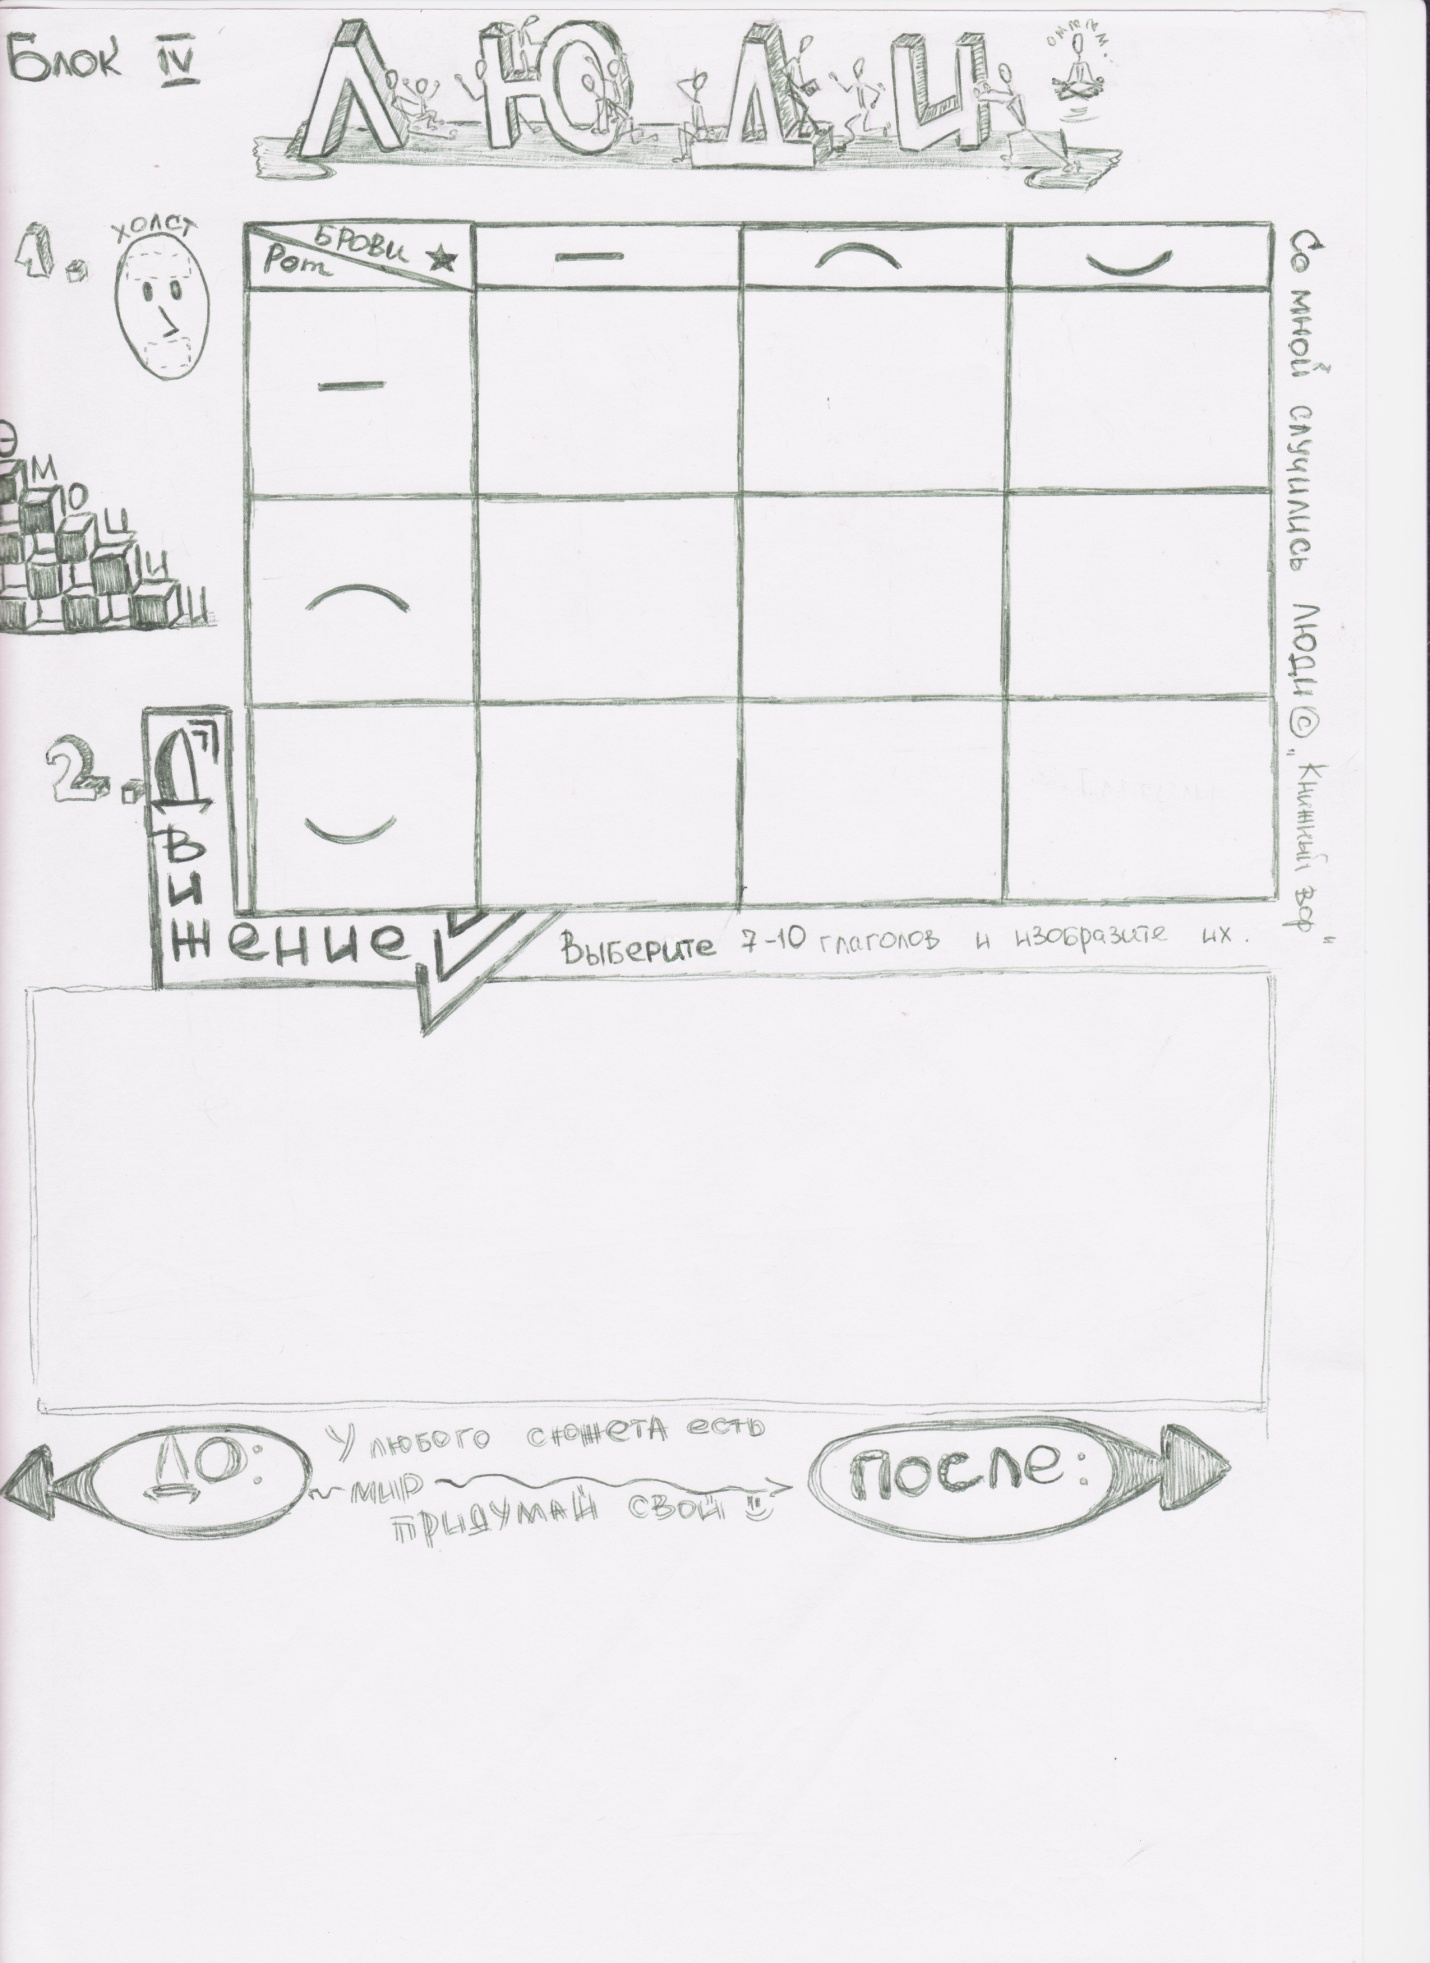 Блок IV
ЛЮДИ
оммммм...
1.
ХОЛСТ
БРОВИ
Рот
ЭМОЦИИ
Со мной случились люди © "Книжный вор"
2.
Движение
Выберите 7-10 глаголов и изобразите их.
ДО:
У любого сюжета есть
мир
придумай свой
После: